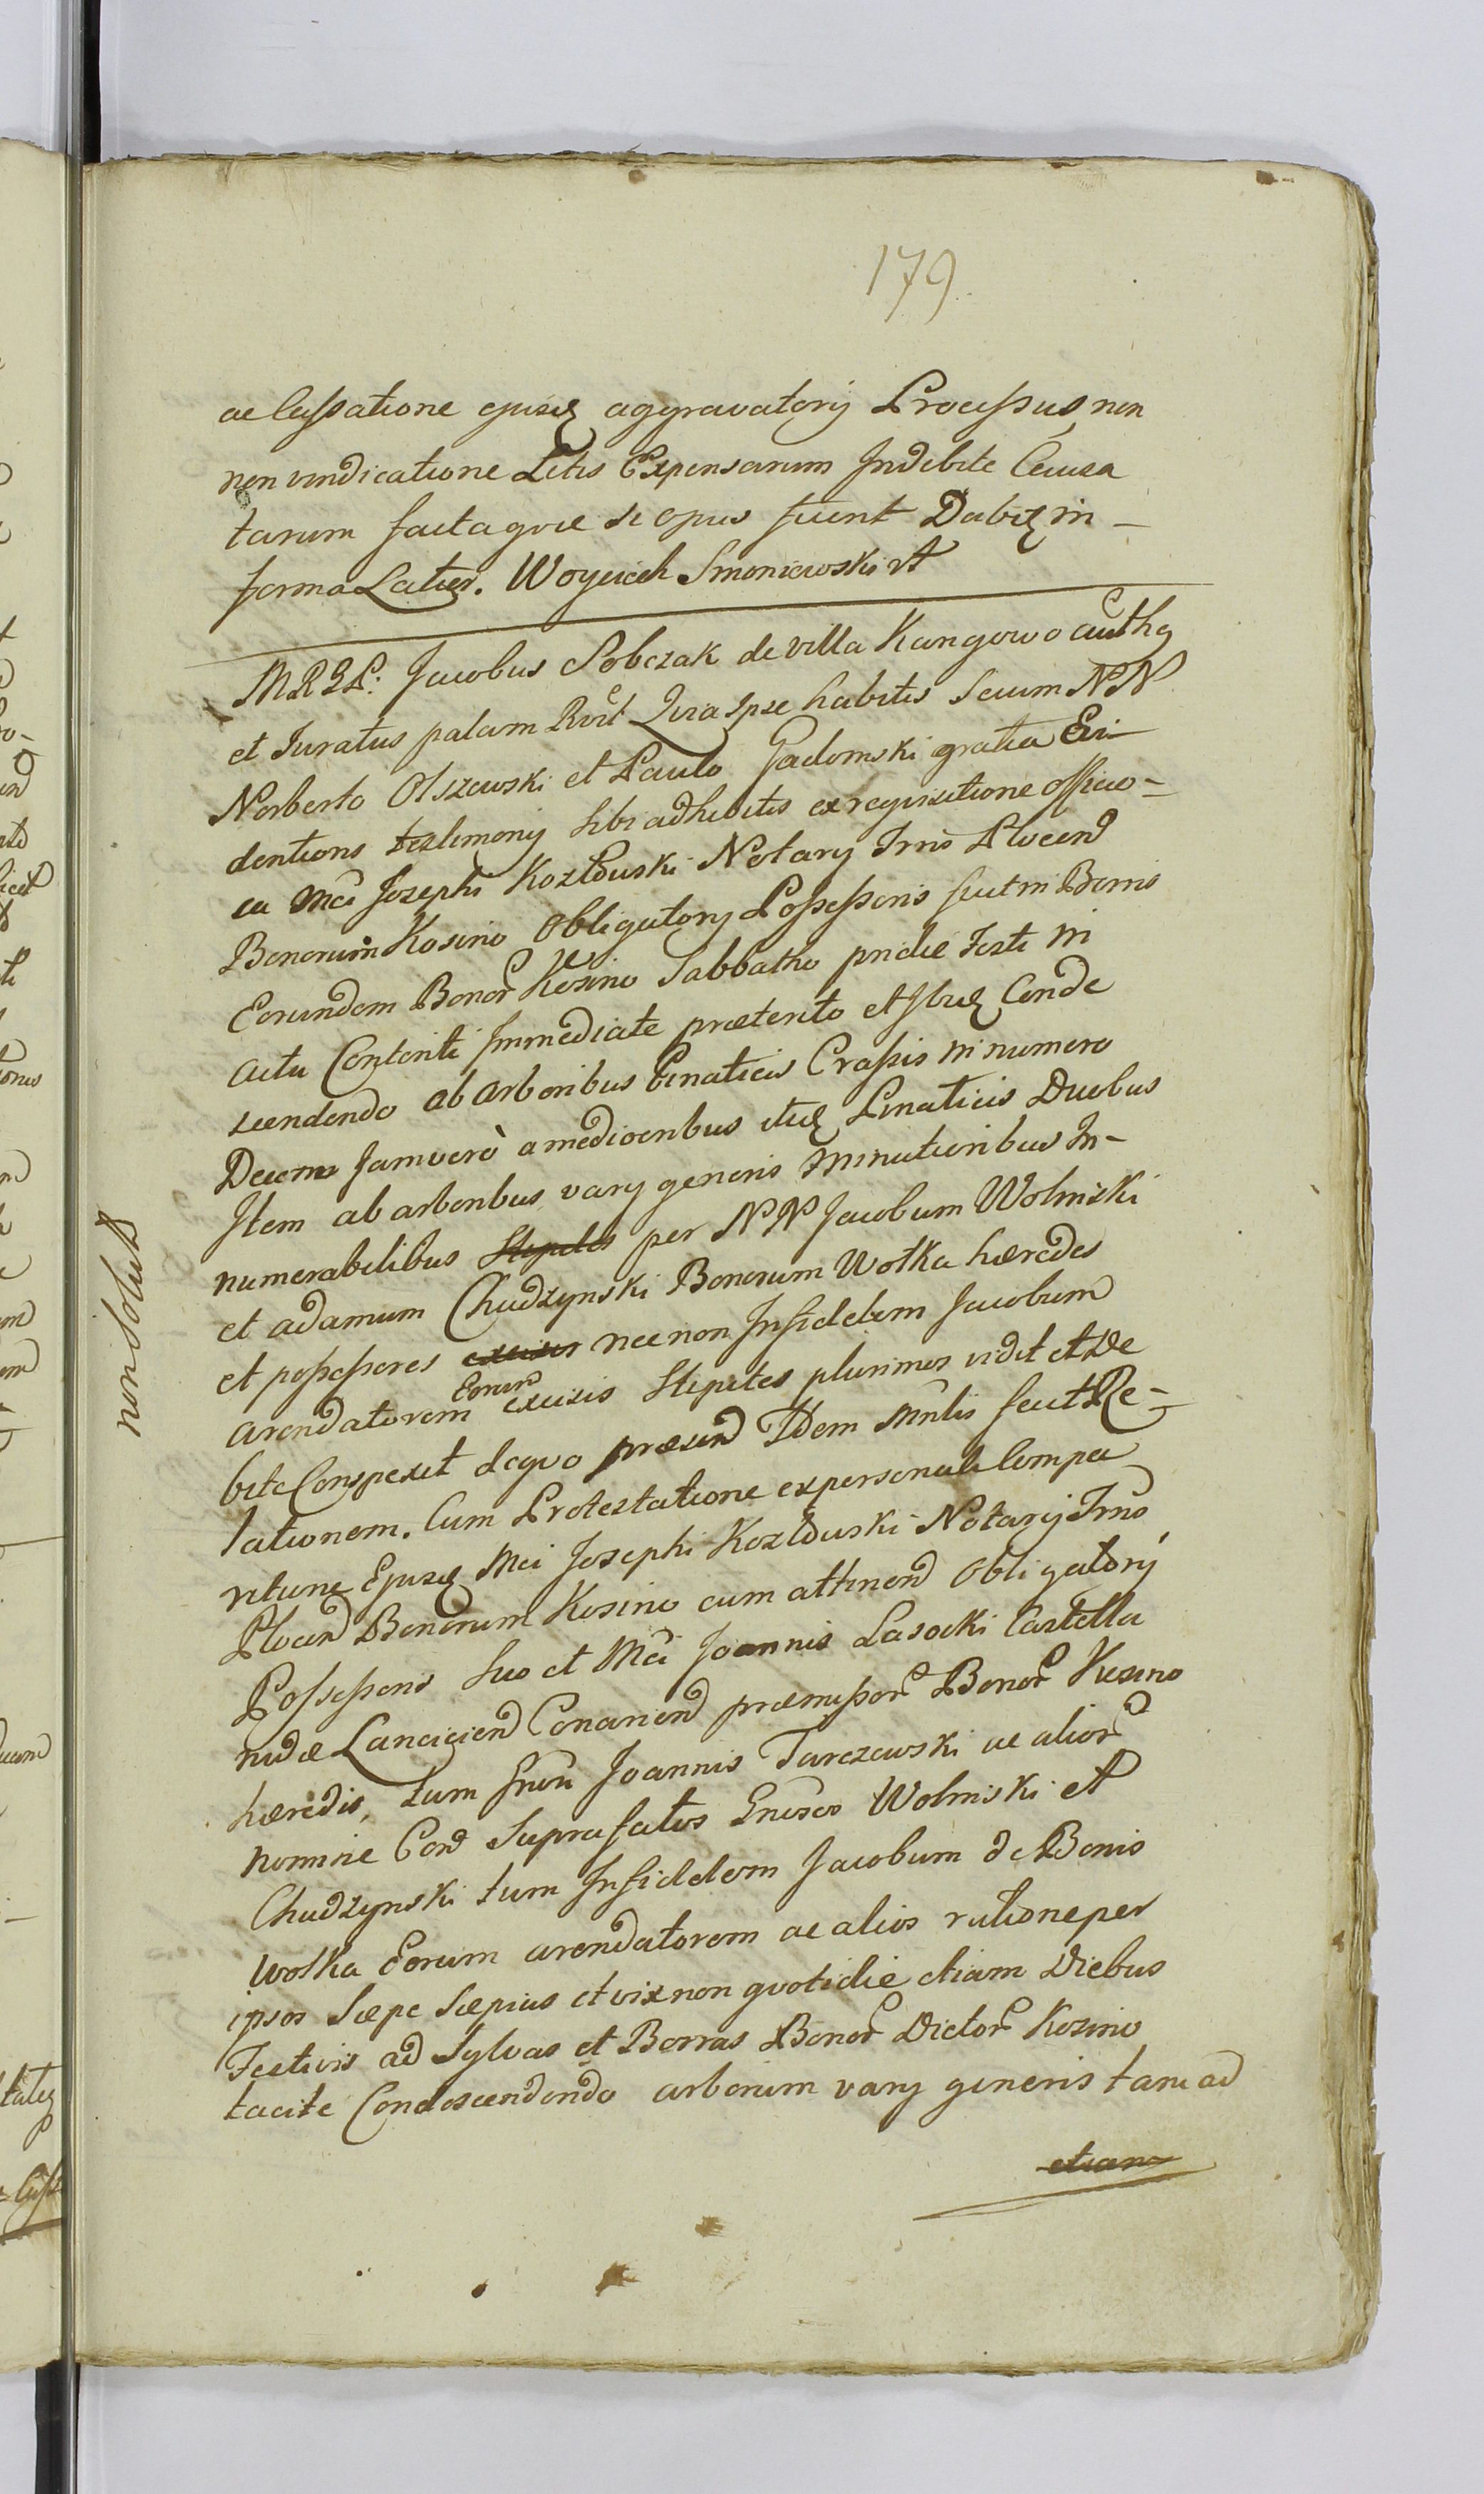 179
ac Cassatione ejusq aggravatory Processus non
non vindicatione Litis Expensarum Indebite Causa
tarum facta qvoe si opus fuerit Dabitq in-
forma Latiq. Woyciech Smoniewski
MRGP: Jacobus Sobczak de villa Kangowo auth
et Juratus palam Rvit Qvia Ipse habitis Secum NN
Norberto Olszewski et Paulo Gadomski gratia Evi-
dentioris testimony sibi adhibitis ex reqvisitione officio-
sa Mci Josephi Kozłowski Notary Trris Plocen
Bonorum Kosino Obligatory Possessoris fuit in Bonis
Eorundem Bonor Kosino Sabbatho pridie Festi in
actu Contenti Immediate proeterito et Ibiq Conde
scendendo ab arboribus Pinaticis Crassis in numero
Decem Jamverò a mediocribus itiq Pinaticis Duobus
Item ab arboribus vary generis minutioribus In-
numerabilibus Stipites per NN Jacobum Wolmiski
et adamum Chudzynski Bonorum Wolka hoeredes
et possessores excisis nec non Infidelem Jacobum
arendatorem Eorum excisis Stipites plurimos vidit et De
bite Conspexit de qvo proesend Idem Mnlis fecit Re-
lationem. Cum Protestatione ex personali Compa
ritione Ejusq Mci Josephi Kozłowski Notarij Trris
Plocen Bonorum Kosino cum attinend Obligatorij
Possessoris Suo et Mci Joannis Lasocki Castella
nidoe Lanciciend Conariend proemissor Bonor Kosino
hoeredis, tum Gnri Joannis Tarczewski ac alior
nomine Cond Suprafatos Gnrsos Wolmiski et
Chudzynski tum Infidelem Jacobum de Bonis
Wolka Eorum arendatorem ac alios ratione per
ipsos Soepe Soepius et vix non qvotidie etiam Diebus
Festivis ad Sylvas et Borras Bonor Dictor Kosino
tacite Condescendendo arborum vary generis tam ad
etiam
non solut